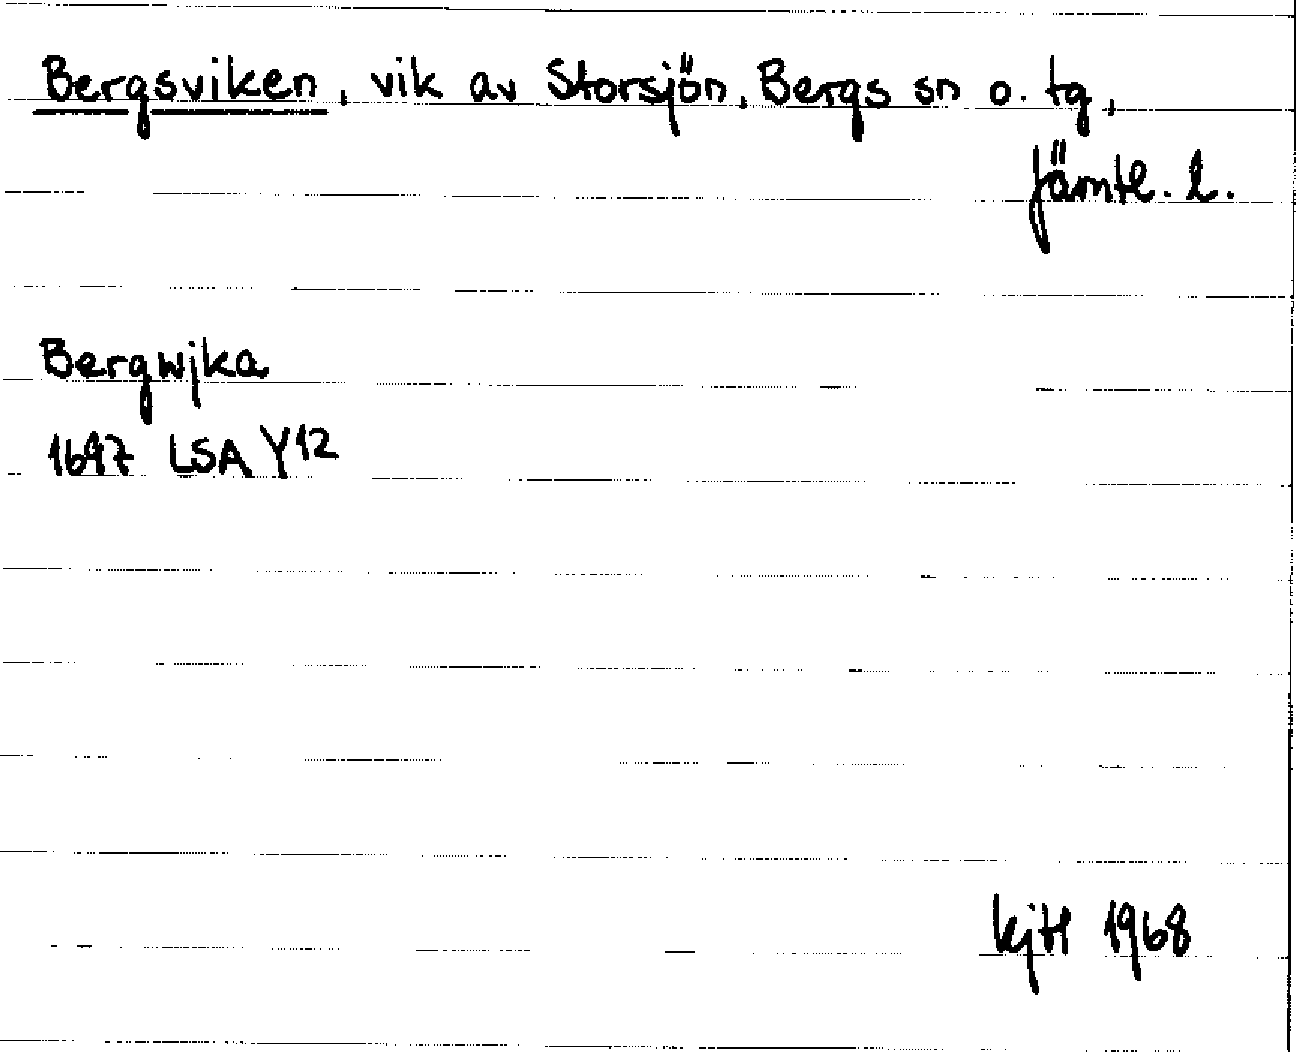 Bergsviken, vik av Storsjön, Bergs sn o. tg,
Jämtl. l.
Bergwjka
1697 LSA Y12
1968